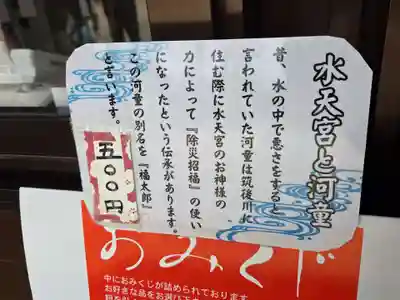 水天宮と河童
昔、水の中で悪さをすると
言われていた河童は筑後川に
住む際に水天宮のお神様の
力によって『除災招福』の使い
になったという伝承があります。
この河童の別名を『福太郎』
と言います。
五〇〇円
おみくじ
中におみくじが詰められております
お好きな品をお選び下